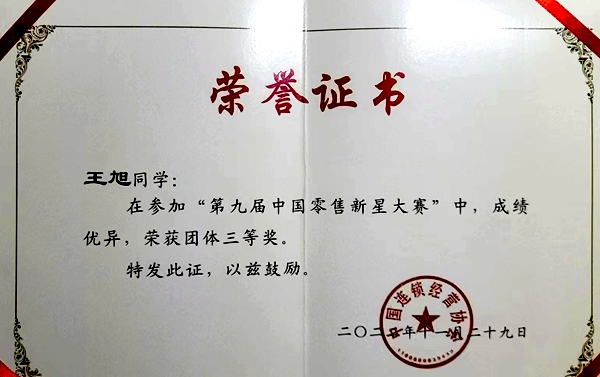 荣誉证书
王旭同学：
在参加“第九届中国零售新星大赛”中，成绩
优异，荣获团体三等奖。
特发此证，以兹鼓励。
中国连锁经营协会
二〇二二年十一月二十九日